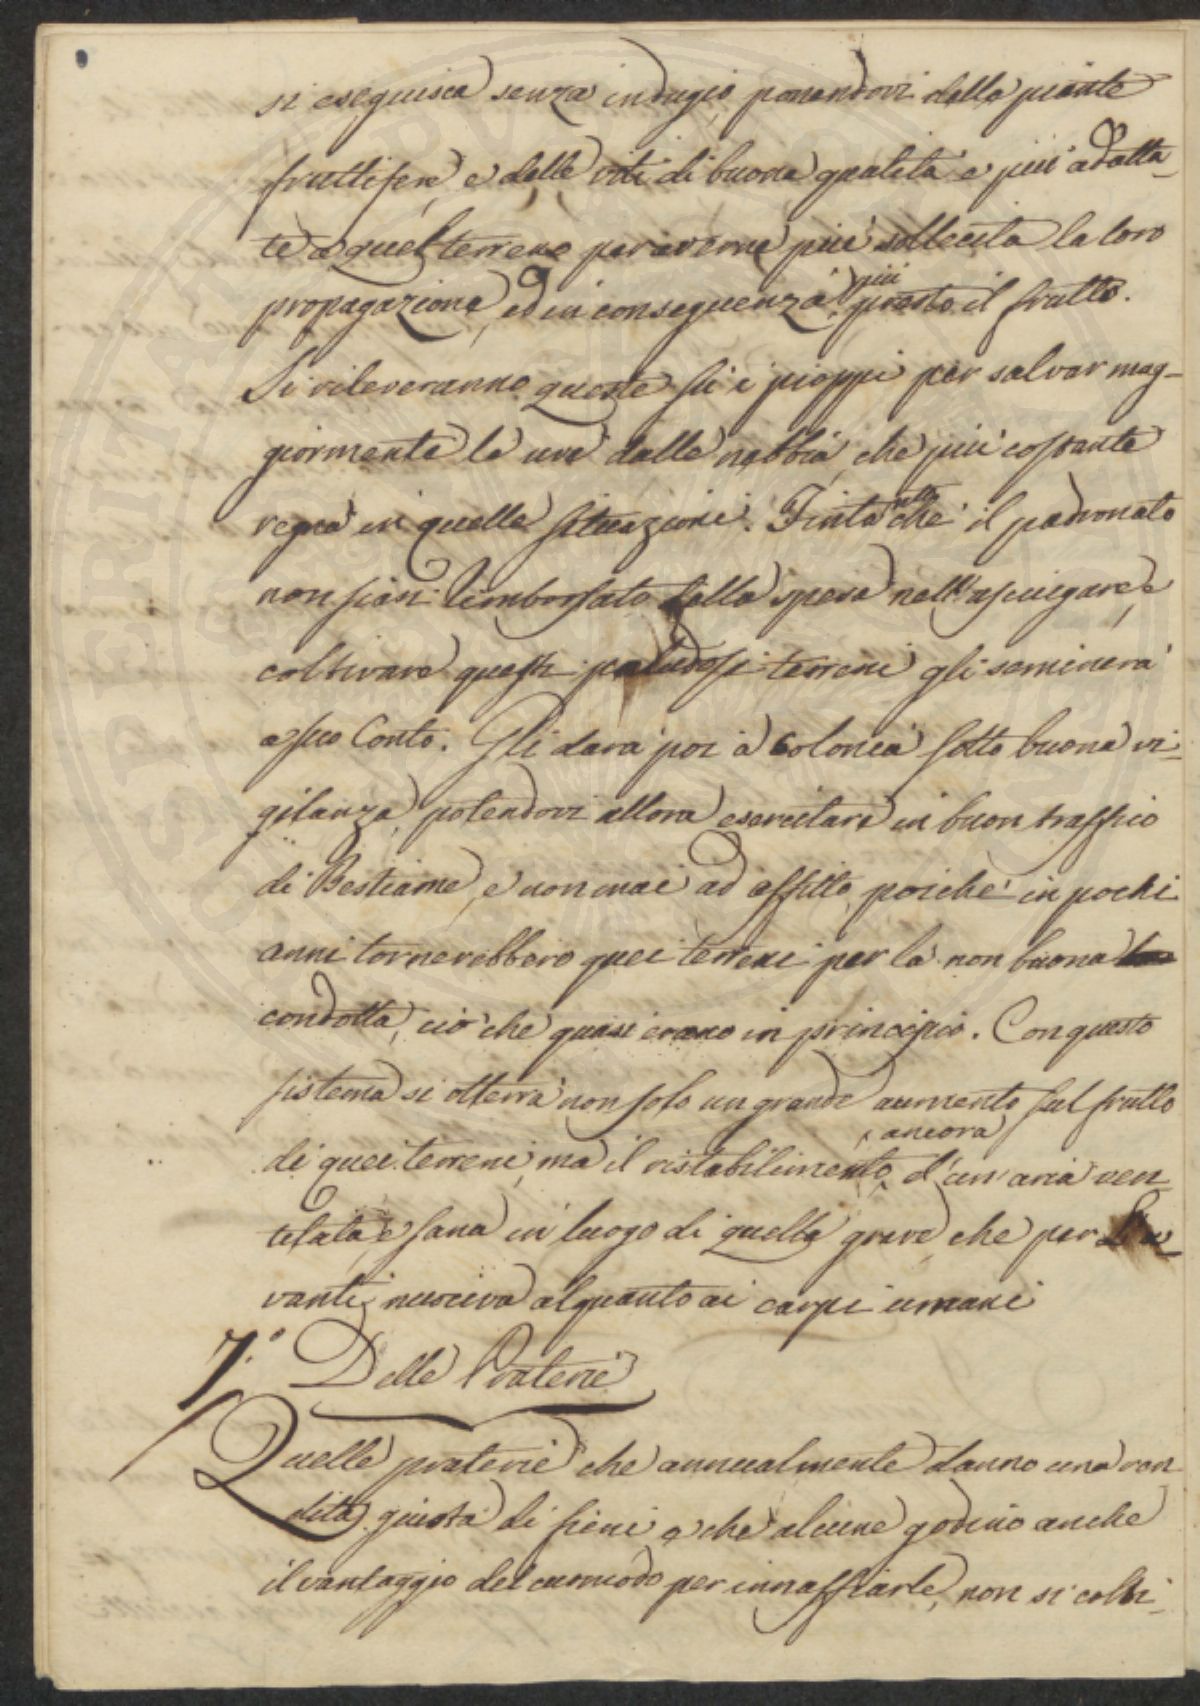 si eseguisca senza indugio ponendovi delle piante
fruttifere, e delle viti di buona qualità e più adatta-
te a quel terreno per averne più sollecita la loro
propagazione, ed in conseguenza più presto il frutto.
Si rileveranno queste su i pioppi per salvar mag-
giormente le uve dalle nebbia che più costante
regna in quelle situazioni. Finta tto che il padronato
non siasi rimborsato della spesa nell'asciugare, e
coltivare questi paludosi terreni gli seminerà
a suo Conto. Gli darà poi a Colonia sotto buona vi-
gilanza, potendovi allora esercitare un buon traffico
di Bestiame, e non mai ad affitto, poichè in pochi
anni tornerebbero quei terreni per la non buona
condotta, ciò che quasi erano in principio. Con questo
sistema si otterrà non solo un grande aumento sul frutto
di quei terreni, ma il ristabilimento ancora d'un'aria ven-
tilata, e sana in luogo di quella grave, che per l'a-
vanti nuoceva alquanto ai corpi umani
7.° Delle Praterie
Quelle praterie che annualmente danno una ren
dita giusta di fieni, e che alcune godino anche
il vantaggio del commodo per innaffiarle, non si colti-